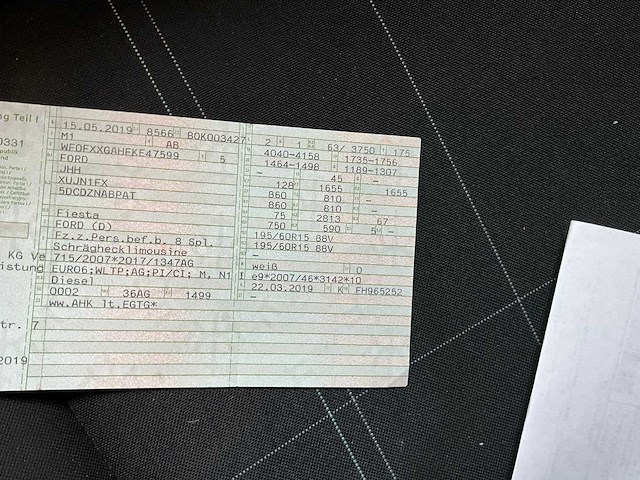 ng Teil I
0331
KG Ve
istung
tr. 7
2019
15.05.2019 8566 BOK003427
M1 AB
WF0FXXGAHFKE47599 5
FORD
JHH
XUJN1FX
5DCDZNABPAT
Fiesta
FORD (D)
Fz.z.Pers.bef.b. 8 Spl.
Schräghecklimousine
715/2007*2017/1347AG
EURO6;WLTP;AG;PI/CI; M, N1 I
Diesel
0002 36AG 1499
ww.AHK lt.EGTG*
2 1 63/ 3750 175
4040-4158 1735-1756
1464-1498 1189-1307
– 45 –
128 1655 1655
860 810 –
860 810 –
75 2813 67
750 590 5 –
195/60R15 88V
195/60R15 88V
–
weiß 0
e9*2007/46*3142*10
22.03.2019 K FH965252
–